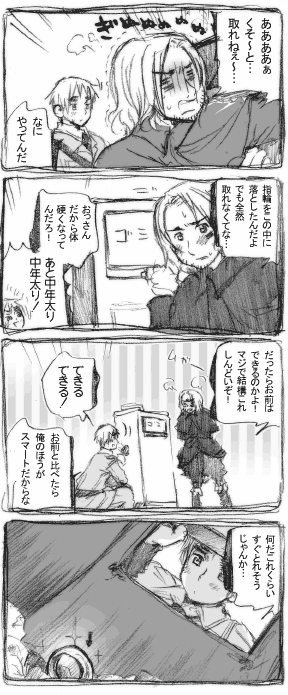 ああああぁ
くそ～と…
取れねぇ～…
なに
やってんだ
指輪をこの中に
落としたんだよ
でも全然
取れなくてな…
おっさん
だから体
硬くなって
んだろ！
あと中年太り
中年太り！
だったらお前は
できるのかよ！
マジで結構これ
しんどいぞ！
できる
できる！
お前と比べたら
俺のほうが
スマートだからな
何だこれくらい
すぐとれそう
じゃんか…